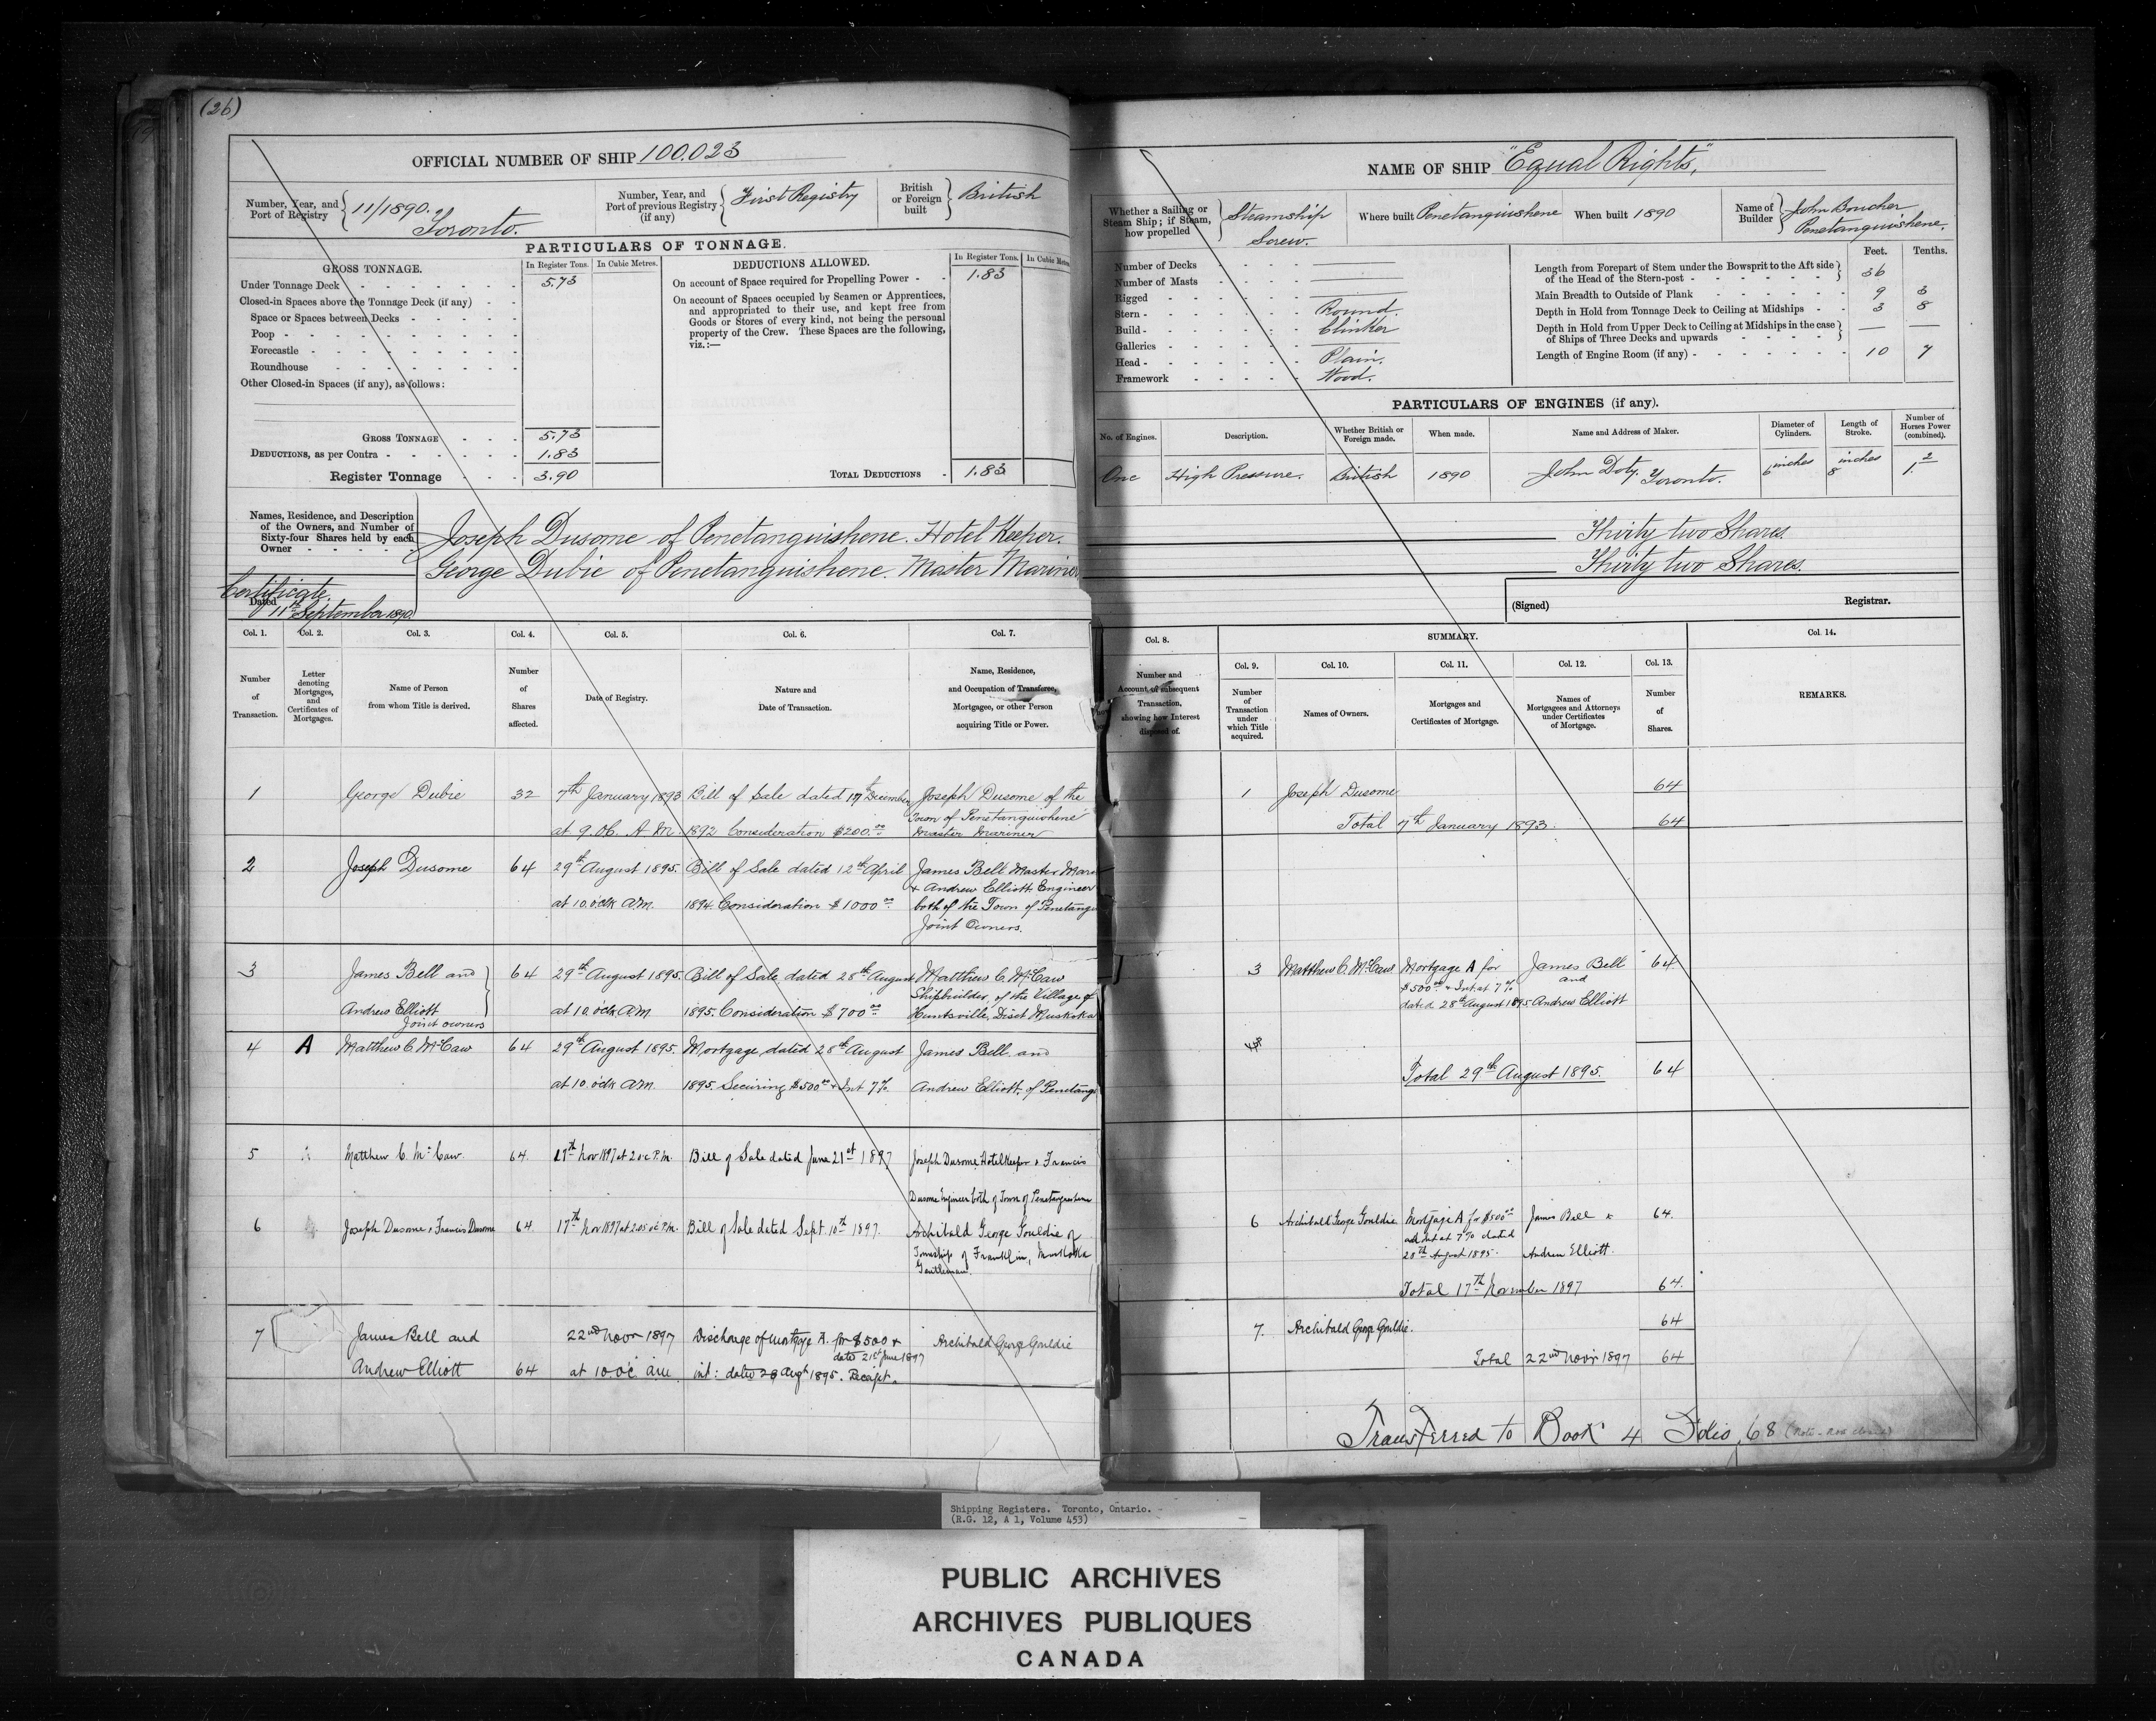 (26)
OFFICIAL NUMBER OF SHIP 100.023
Number, Year, and Port of Registry { 11/1890. Toronto.
Number, Year, and Port of previous Registry (if any) { First Registry
British or Foreign built } British
PARTICULARS OF TONNAGE.
GROSS TONNAGE. In Register Tons. In Cubic Metres.
Under Tonnage Deck 5.73
Closed-in Spaces above the Tonnage Deck (if any)
Space or Spaces between Decks
Poop
Forecastle
Roundhouse
Other Closed-in Spaces (if any), as follows:
GROSS TONNAGE 5.73
DEDUCTIONS, as per Contra 1.83
Register Tonnage 3.90
DEDUCTIONS ALLOWED. In Register Tons. In Cubic
On account of Space required for Propelling Power - 1.83
On account of Spaces occupied by Seamen or Apprentices,
and appropriated to their use, and kept free from
Goods or Stores of every kind, not being the personal
property of the Crew. These Spaces are the following,
viz.:—
TOTAL DEDUCTIONS 1.83
Names, Residence, and Description
of the Owners, and Number of
Sixty-four Shares held by each
Owner
Joseph Dusome of Penetanguishene. Hotel Keeper.
George Dubie of Penetanguishene. Master Mariner
Certificate
Dated 11th September 1890
Col. 1. Col. 2. Col. 3. Col. 4. Col. 5. Col. 6. Col. 7.
Number of Transaction.
Letter denoting Mortgages, and Certificates of Mortgages.
Name of Person from whom Title is derived.
Number of Shares affected.
Date of Registry.
Nature and Date of Transaction.
Name, Residence, and Occupation of Transferee, Mortgagee, or other Person acquiring Title or Power.
1 George Dubie 32 7th January 1893 Bill of Sale dated 17th December Joseph Dusome of the
Town of Penetanguishene
at 9.06. A.M. 1892 Consideration $200.00 Master Mariner
2 Joseph Dusome 64 29th August 1895. Bill of Sale dated 12th April James Bell Master Mari
& Andrew Elliott Engineer
at 10.o'clk A.M. 1894. Consideration $1000.00 both of the Town of Penetangu
Joint Owners.
3 James Bell and 64 29th August 1895. Bill of Sale dated 28th August Matthew C. McCaw
Shipbuilder of the Village of
Andrew Elliott at 10.o'clk A.M. 1895. Consideration $700.00 Huntsville, Dist Muskoka
Joint owners
4 A Matthew C. McCaw 64 29th August 1895. Mortgage dated 28th August James Bell and
at 10.o'clk A.M. 1895. Securing $500.00 & Int 7% Andrew Elliott of Penetang
5 Matthew C. McCaw. 64. 17th Nov 1897 at 2 o'c P.M. Bill of Sale dated June 21st 1897 Joseph Dusome Hotel Keeper & Francis
Dusome Engineer both of Town of Penetanguishene
6 Joseph Dusome & Francis Dusome 64. 17th Nov 1897 at 2.05 o'c P.M. Bill of Sale dated Sept. 10th 1897. Archibald George Gouldie of
Township of Franklin, Muskoka
Gentleman.
7 James Bell and 22nd Novr 1897 Discharge of Mortgage A. for $500 & Archibald George Gouldie
dated 21st June 1897
Andrew Elliott 64 at 10 o'c. a.m. int: dated 28 Augt 1895. Receipt.
NAME OF SHIP "Equal Rights",
Whether a Sailing or Steam Ship; if Steam, how propelled } Steamship Screw.
Where built Penetanguishene When built 1890
Name of Builder } John Boucher Penetanguishene.
Number of Decks
Number of Masts
Rigged
Stern - Round.
Build - Clinker
Galleries
Head - Plain.
Framework Wood.
Feet. Tenths.
Length from Forepart of Stem under the Bowsprit to the Aft side
of the Head of the Stern-post 36
Main Breadth to Outside of Plank 9 3
Depth in Hold from Tonnage Deck to Ceiling at Midships 3 8
Depth in Hold from Upper Deck to Ceiling at Midships in the case
of Ships of Three Decks and upwards — —
Length of Engine Room (if any) 10 7
PARTICULARS OF ENGINES (if any).
No. of Engines. Description. Whether British or Foreign made. When made. Name and Address of Maker. Diameter of Cylinders. Length of Stroke. Number of Horses Power (combined).
One High Pressure. British 1890 John Doty. Toronto. 6 inches 8 inches 1.2
Thirty two Shares.
Thirty two Shares.
(Signed) Registrar.
Col. 8. SUMMARY. Col. 14.
Col. 9. Col. 10. Col. 11. Col. 12. Col. 13.
Number and Account of subsequent Transaction, showing how Interest disposed of.
Number of Transaction under which Title acquired.
Names of Owners.
Mortgages and Certificates of Mortgage.
Names of Mortgagees and Attorneys under Certificates of Mortgage.
Number of Shares.
REMARKS.
1 Joseph Dusome 64
Total 7th January 1893. 64
3 Matthew C. McCaw Mortgage A for James Bell 64
$500.00 & Int. at 7% and
dated 28th August 1895 Andrew Elliott
Total 29th August 1895. 64
6 Archibald George Gouldie Mortgage A for $500.00 James Bell & 64.
and int at 7% dated
28th August 1895. Andrew Elliott.
Total 17th November 1897 64.
7. Archibald George Gouldie. 64
Total 22nd Novr 1897 64
Transferred to Book 4 Folio 68
Shipping Registers. Toronto, Ontario.
(R.G. 12, A 1, Volume 453)
PUBLIC ARCHIVES
ARCHIVES PUBLIQUES
CANADA